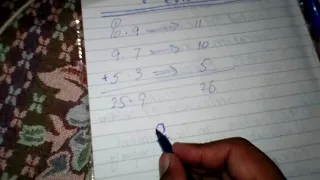 10.9 ⟹ 11
9.7 ⟹ 10
+5.3 ⟹ 5
25.9 26